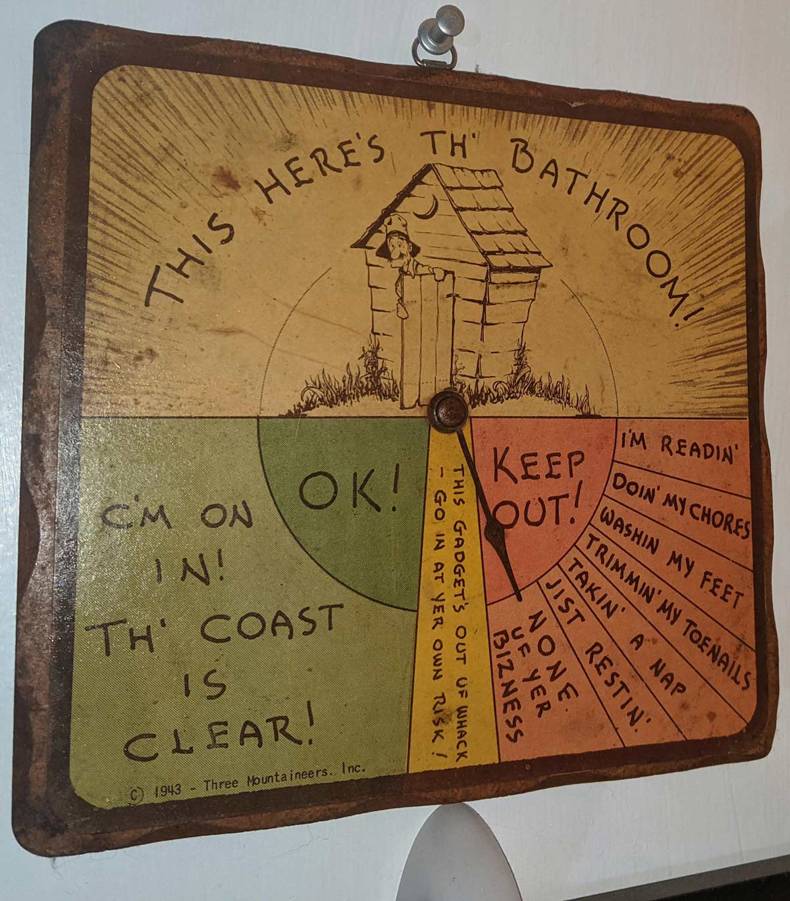 THIS HERE'S TH' BATHROOM!
OK!
C'M ON
IN!
TH' COAST
IS
CLEAR!
THIS GADGET'S OUT UF WHACK
- GO IN AT YER OWN RISK!
KEEP
OUT!
I'M READIN'
DOIN' MY CHORES
WASHIN MY FEET
TRIMMIN' MY TOENAILS
TAKIN' A NAP
JIST RESTIN'.
NONE
UF YER
BIZNESS
© 1943 - Three Mountaineers. Inc.